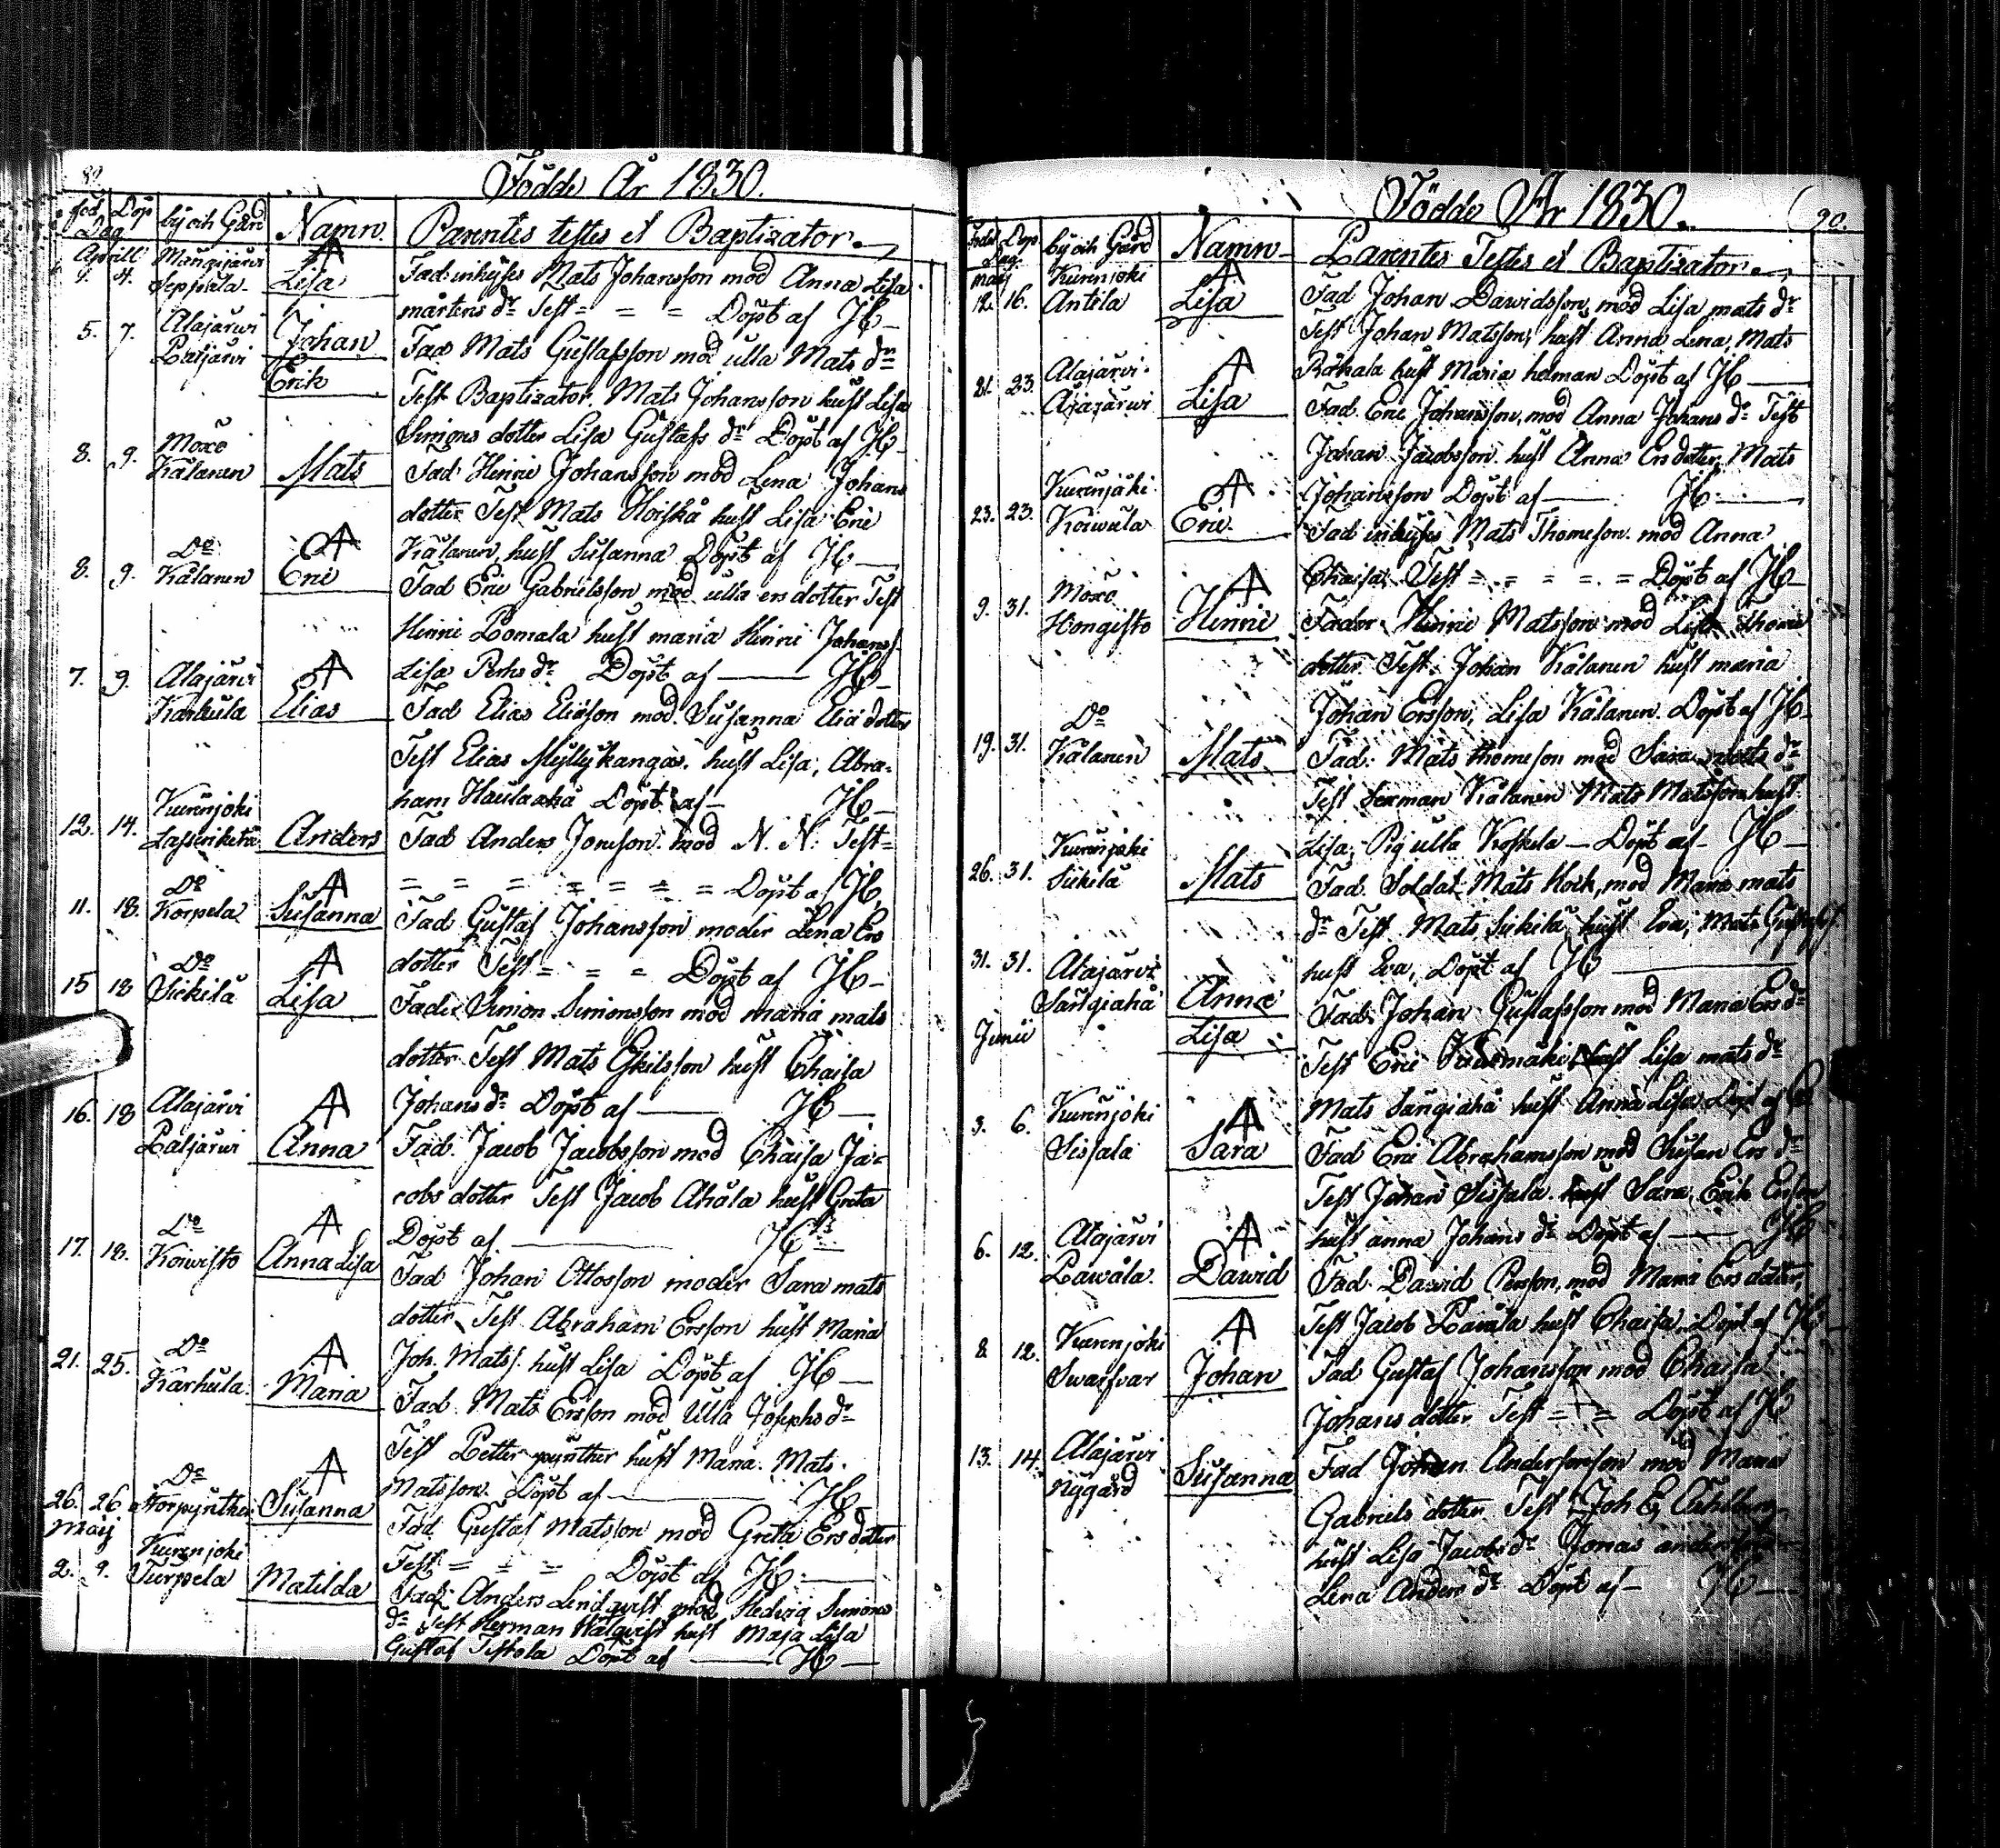 89
Födde År 1830.
föd Döp by och Gård Namn. Parentes testes et Baptizator.
Dag
Aprill Mängijärvi
4. Seppäla Lisa Fad inhyses Mats Johansson mod Anna Lisa
mårtens dr Test = = = Döpt af JH
5. 7. Alajärwi Johan Fad Mats Gustafsson mod ulla Mats dr
Paljärvi Erik Test Baptizator. Mats Johansson hust Lisa
Simons dotter Lisa Gustafs dr Döpt af JH
8. 9. Moxo Kälanen Mats Fad Henric Johansson mod Lena Johans
dotter Test Mats hust Lisa Eric
Kälanen hust Susanna Döpt af JH
8. 9. Do Kälanen Eric Fad Eric Gabrielsson mod ulla ers dotter Test
Henric Pomala hust maria Henric Johanss.
Lisa Pehrs dr Döpt af JH
7. 9. Alajärvi Karhula Elias Fad Elias Eliäson mod. Susanna Eliä dotter
Test Elias Myllykangas. hust Lisa, Abra-
ham Haulaaha Döpt af JH
12. 14. Kurenjoki Anders Fad Anders Jonsson. mod N. N. Test =
= = = = = = = Döpt af JH
11. 18. Do Korpela Susanna Fad Gustaf Johansson moder Lena Ers
dotter Test = = = Döpt af JH
15 18 Do Siekilä Lisa Fader Simon Simonsson mod maria mats
dotter Test Mats Eskilsson hust Chaisa
Johans dr Döpt af JH
16. 18 Alajärvi Paljärwi Anna Fad. Jacob Jacobsson mod Chaisa Ja-
cobs dotter Test Jacob Ahåla hust Greta
Döpt af JH
17. 18. Do Koiwisto Anna Lisa Fad Johan Ottosson moder Sara mats
dotter Test Abraham Ersson hust Maria
Joh. Matss. hust Lisa Döpt af JH
21. 25. Do Karhula Maria Fad. Mats Ersson mod Ulla Josephs dr
Test Petter pynther hust Maria. Mats.
Matsson. Döpt af JH
26. 26 Do Norpynther Susanna Fad Gustaf Matsson mod Greta Ers dotter
Maij Test = = = Döpt af JH
2. 9. Kurenjoki Turpela Matilda Fad. Anders Lindqvist mod Hedvig Simons
dr Test Herman Wälqvist hust Maja Lisa
Gustaf Döpt af JH
90.
Födde År 1830.
Född Döp by och Gård Namn Parentes Testes et Baptizator.
Dag
maij Kurenjoki
12. 16. Antila Lisa Fad Johan Dawidsson, mod Lisa mats dr
Test Johan Matsson, hust Anna Lena, Mats
hust Maria helman Döpt af JH
21. 23. Alajärvi. Lisa Fad. Eric Johansson, mod Anna Johans dr Test
Johan Jacobsson hust Anna Ers dotter, Mats
Johansson Döpt af JH
23. 23. Koiwula Eric. Fad inhyses Mats Thomeson. mod Anna
Chaisa. Test = = = = = Döpt af JH
9. 31. Moxo Hongisto Henric Fader Henric Matsson mod Lisa thome
dotter. Test. Johan Kälanen hust maria
Johan Ersson, Lisa Kälanen. Döpt af JH
19. 31. Do Kälanen Mats Fad. Mats thomeson mod Sara mats dr
Test Kälanen Mats Matsson hust
Lisa, Pig ulla Koskela Döpt af JH
26. 31. Kurenjoki Siekilä Mats Fad. Soldat Mats Hock, mod Maria mats
dr Test Mats Siekilä, hust Eva, Mats
hust Eva, Döpt af JH
31. 31. Alajärvi Sangiaha Anna Fad. Johan Gustafsson mod Maria Ers dr
Junii Lisa Test Eric hust Lisa mats dr
Mats Sangiaha hust Anna Lisa Döpt af
3. 6. Kurenjoki Sissala Sara Fad Eric Abrahamsson mod Susan Ers dr
Test Johan Sissala hust Sara, Erik Ersson
hust anna Johans dr Döpt af JH
6. 12. Alajärvi Pawåla. Dawid Fad. Dawid Persson, mod Maria Ers dotter,
Test Jacob Pawåla hust Chaisa. Döpt af JH
8 12. Kurenjoki Swarfvar Johan Fad Gustaf Johansson mod Chaisa
Johans dotter Test = = Döpt af JH
13. 14. Alajärvi Nygård Susanna Fad Johan Andersson mod Maria
Gabriels dotter. Test Joh E,
hust Lisa Jacobs dr Jonas
Lena Anders dr Döpt af JH